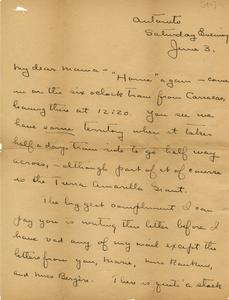 Antonito
Saturday Evening
June 3.
My dear Mama - "Home" again - came
in on the six o'clock train from Carreras,
leaving there at 12:20. You see we
have some territory when it takes
half a day's train ride to go half way
across, - although part of it of course
is the Tierra Amarilla Grant.
The biggest compliment I can
pay you is writing this letter before I
have read any of my mail except the
letters from you, Marie, Miss Rankin,
and Miss Berger. There is quite a stack